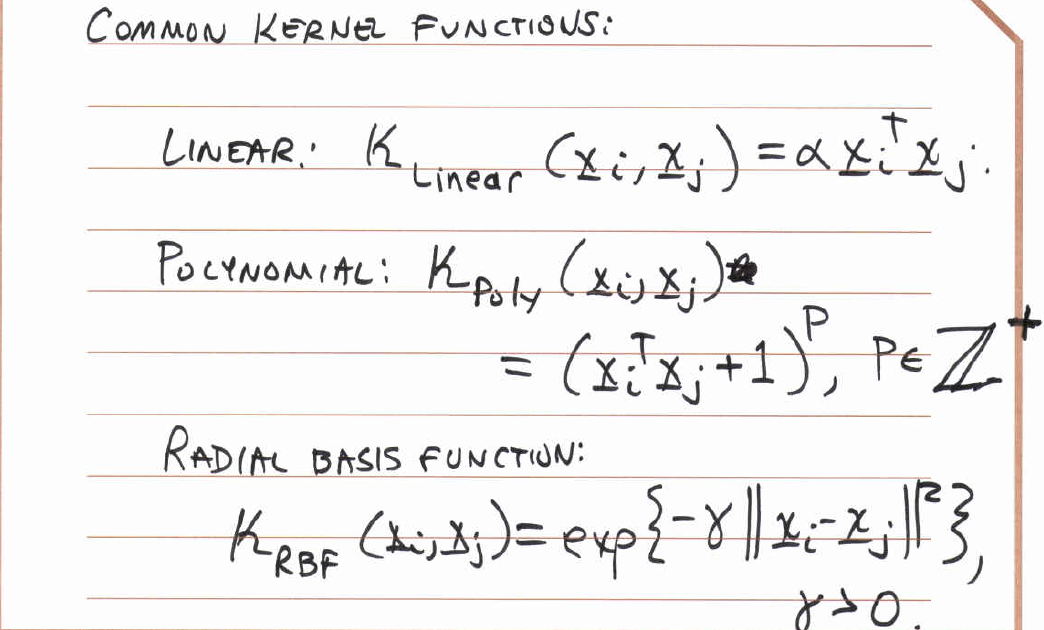 COMMON KERNEL FUNCTIONS:
LINEAR: K_Linear (x̲_i, x̲_j) = α x̲_i^T x̲_j.
POLYNOMIAL: K_Poly (x̲_i, x̲_j)
= (x̲_i^T x̲_j + 1)^P, P ∈ ℤ^+
RADIAL BASIS FUNCTION:
K_RBF (x̲_i, x̲_j) = exp{-γ ||x̲_i - x̲_j||^2},
γ > 0.